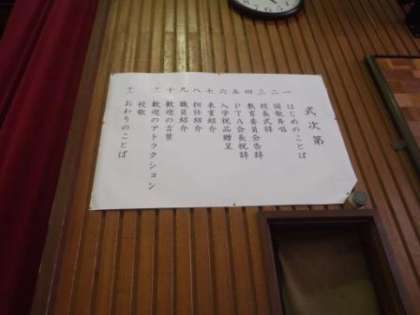 式次第
一 はじめのことば
二 国歌斉唱
三 校長式辞
四 教育委員会告辞
五 PTA会長祝辞
六 入学祝品贈呈
七 来賓紹介
八 担任紹介
九 職員紹介
十 歓迎の言葉
十一 歓迎のアトラクション
校歌
十二 おわりのことば